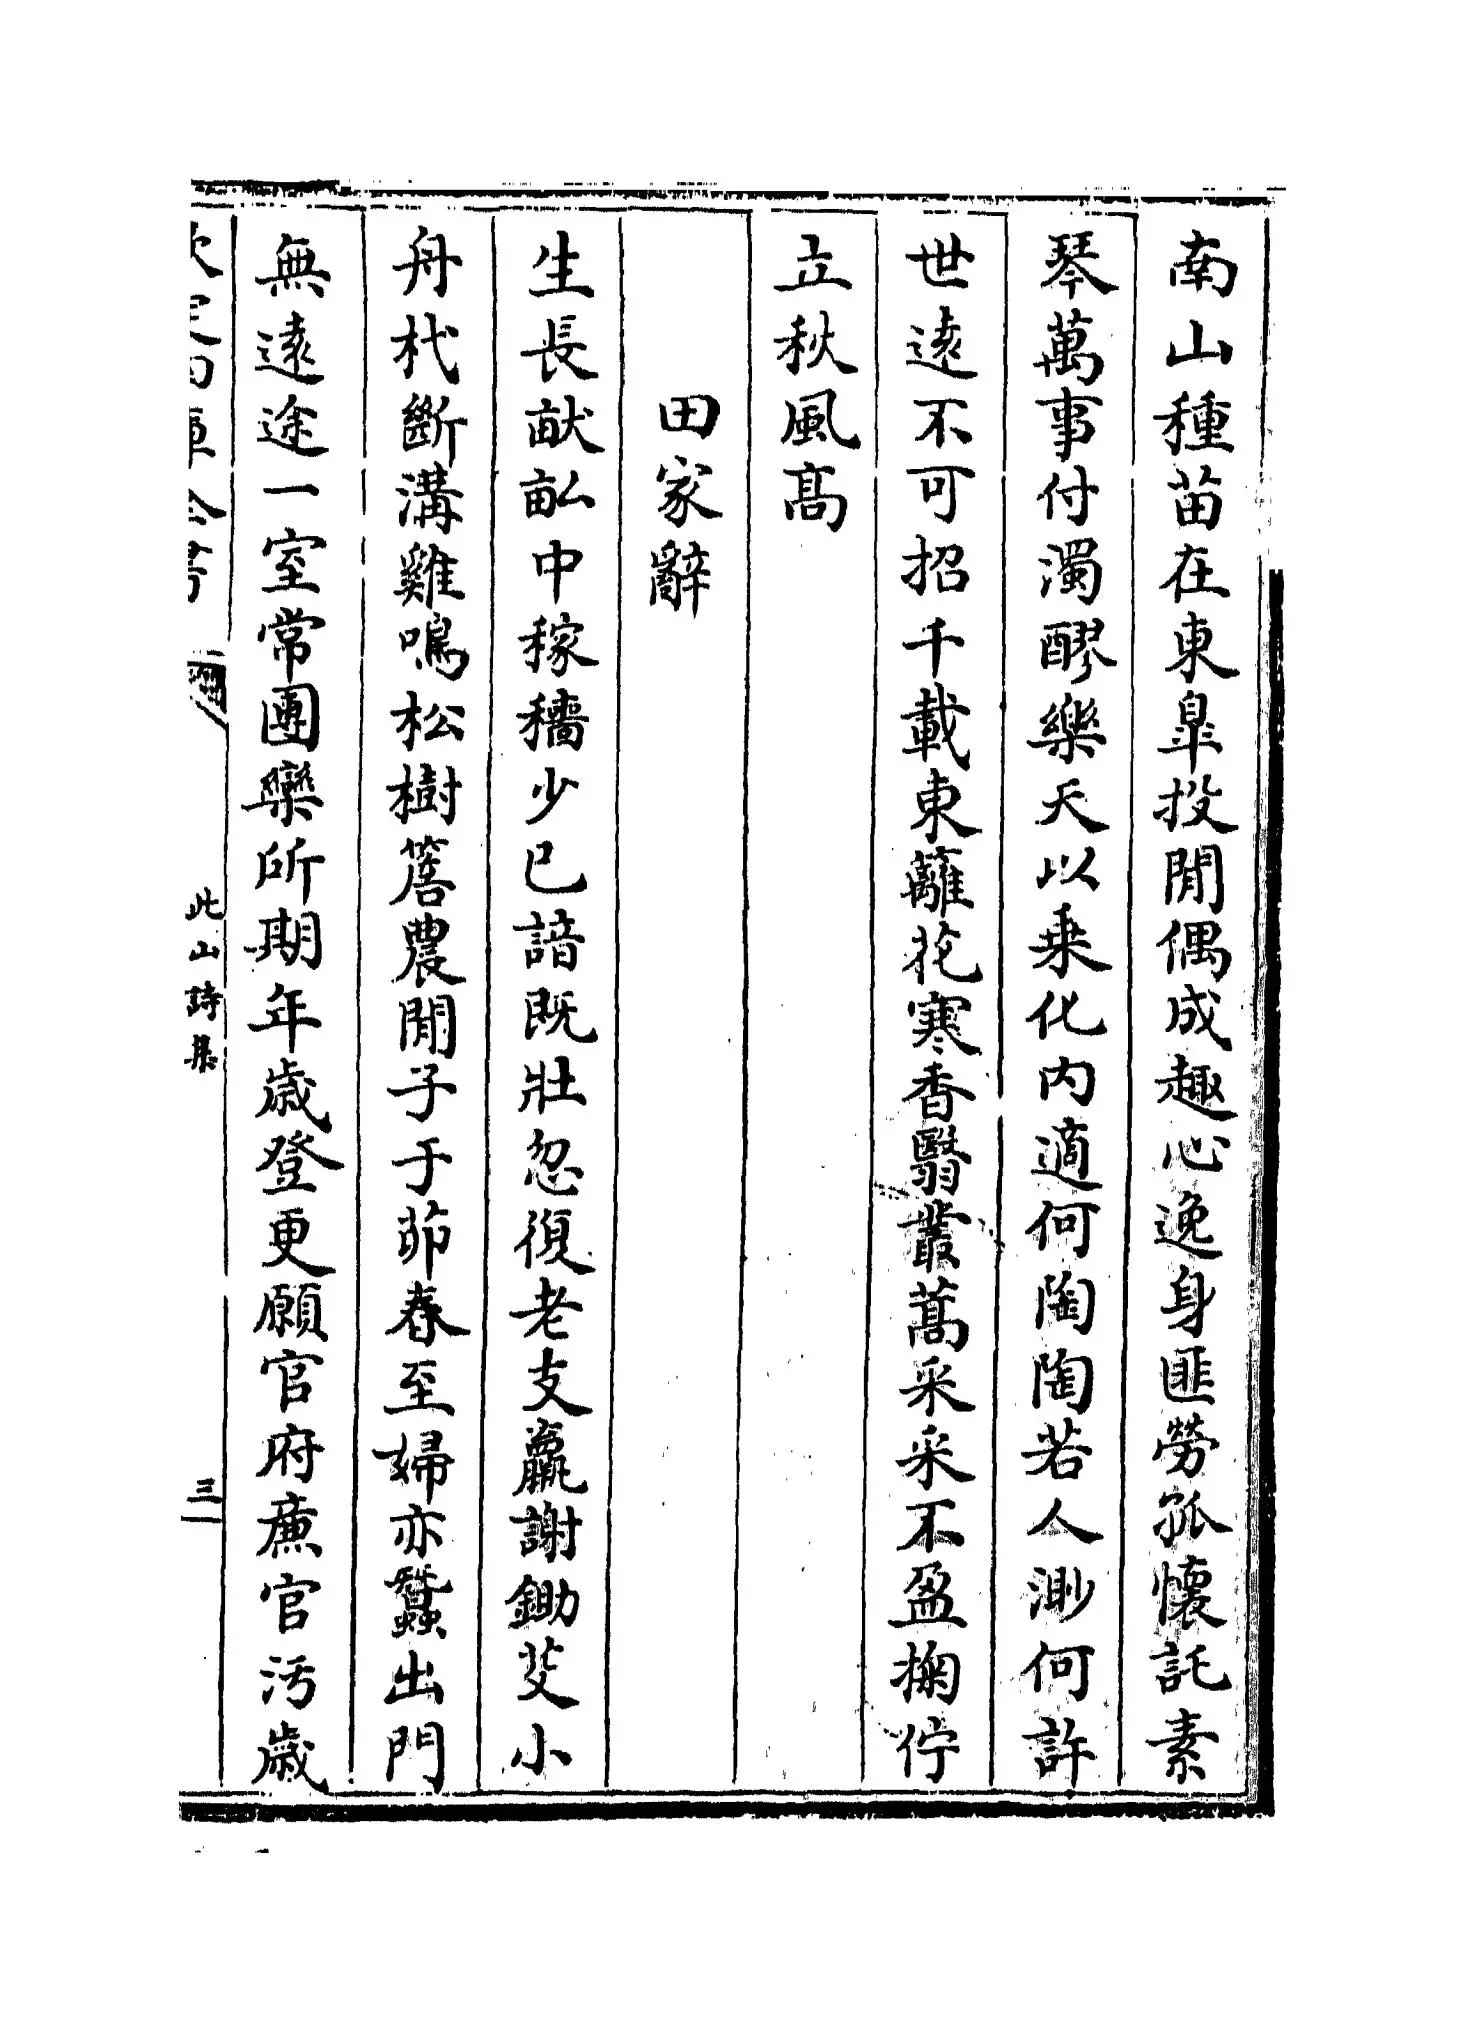 南山種苗在東臯投閒偶成趣心逸身匪勞孤懷託素
琴萬事付濁醪樂天以乗化内適何陶陶若人渺何許
世逺不可招千載東籬花寒香翳叢蒿采采不盈掬佇
立秋風髙
田家辭
生長畎畝中稼穡少已諳既壯忽復老支羸謝鋤芟小
舟杙斷溝雞鳴松樹簷農閒子于茆春至婦亦蠶出門
無逺途一室常團欒所期年歲登更願官府廉官汚歲
欽定四庫全書
此山詩集
三